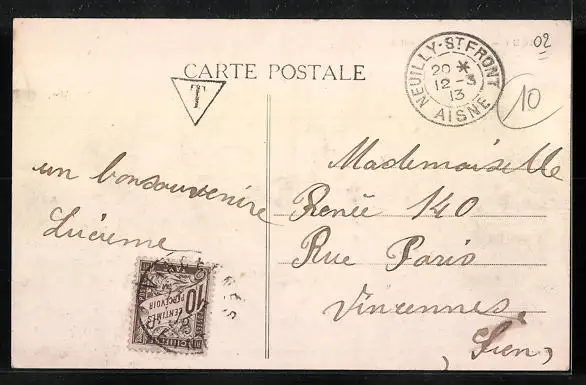 CARTE POSTALE
T
NEUILLY-ST FRONT
20 *
12-3
13
AISNE
02
10
un bonsouvenire
Lucienne
Mademoiselle
Renée 140
Rue Paris
Vincennes
(Sien)
10
CENTIMES
A PERCEVOIR